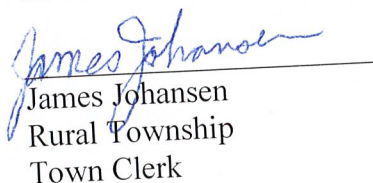 James Johansen
James Johansen
Rural Township
Town Clerk